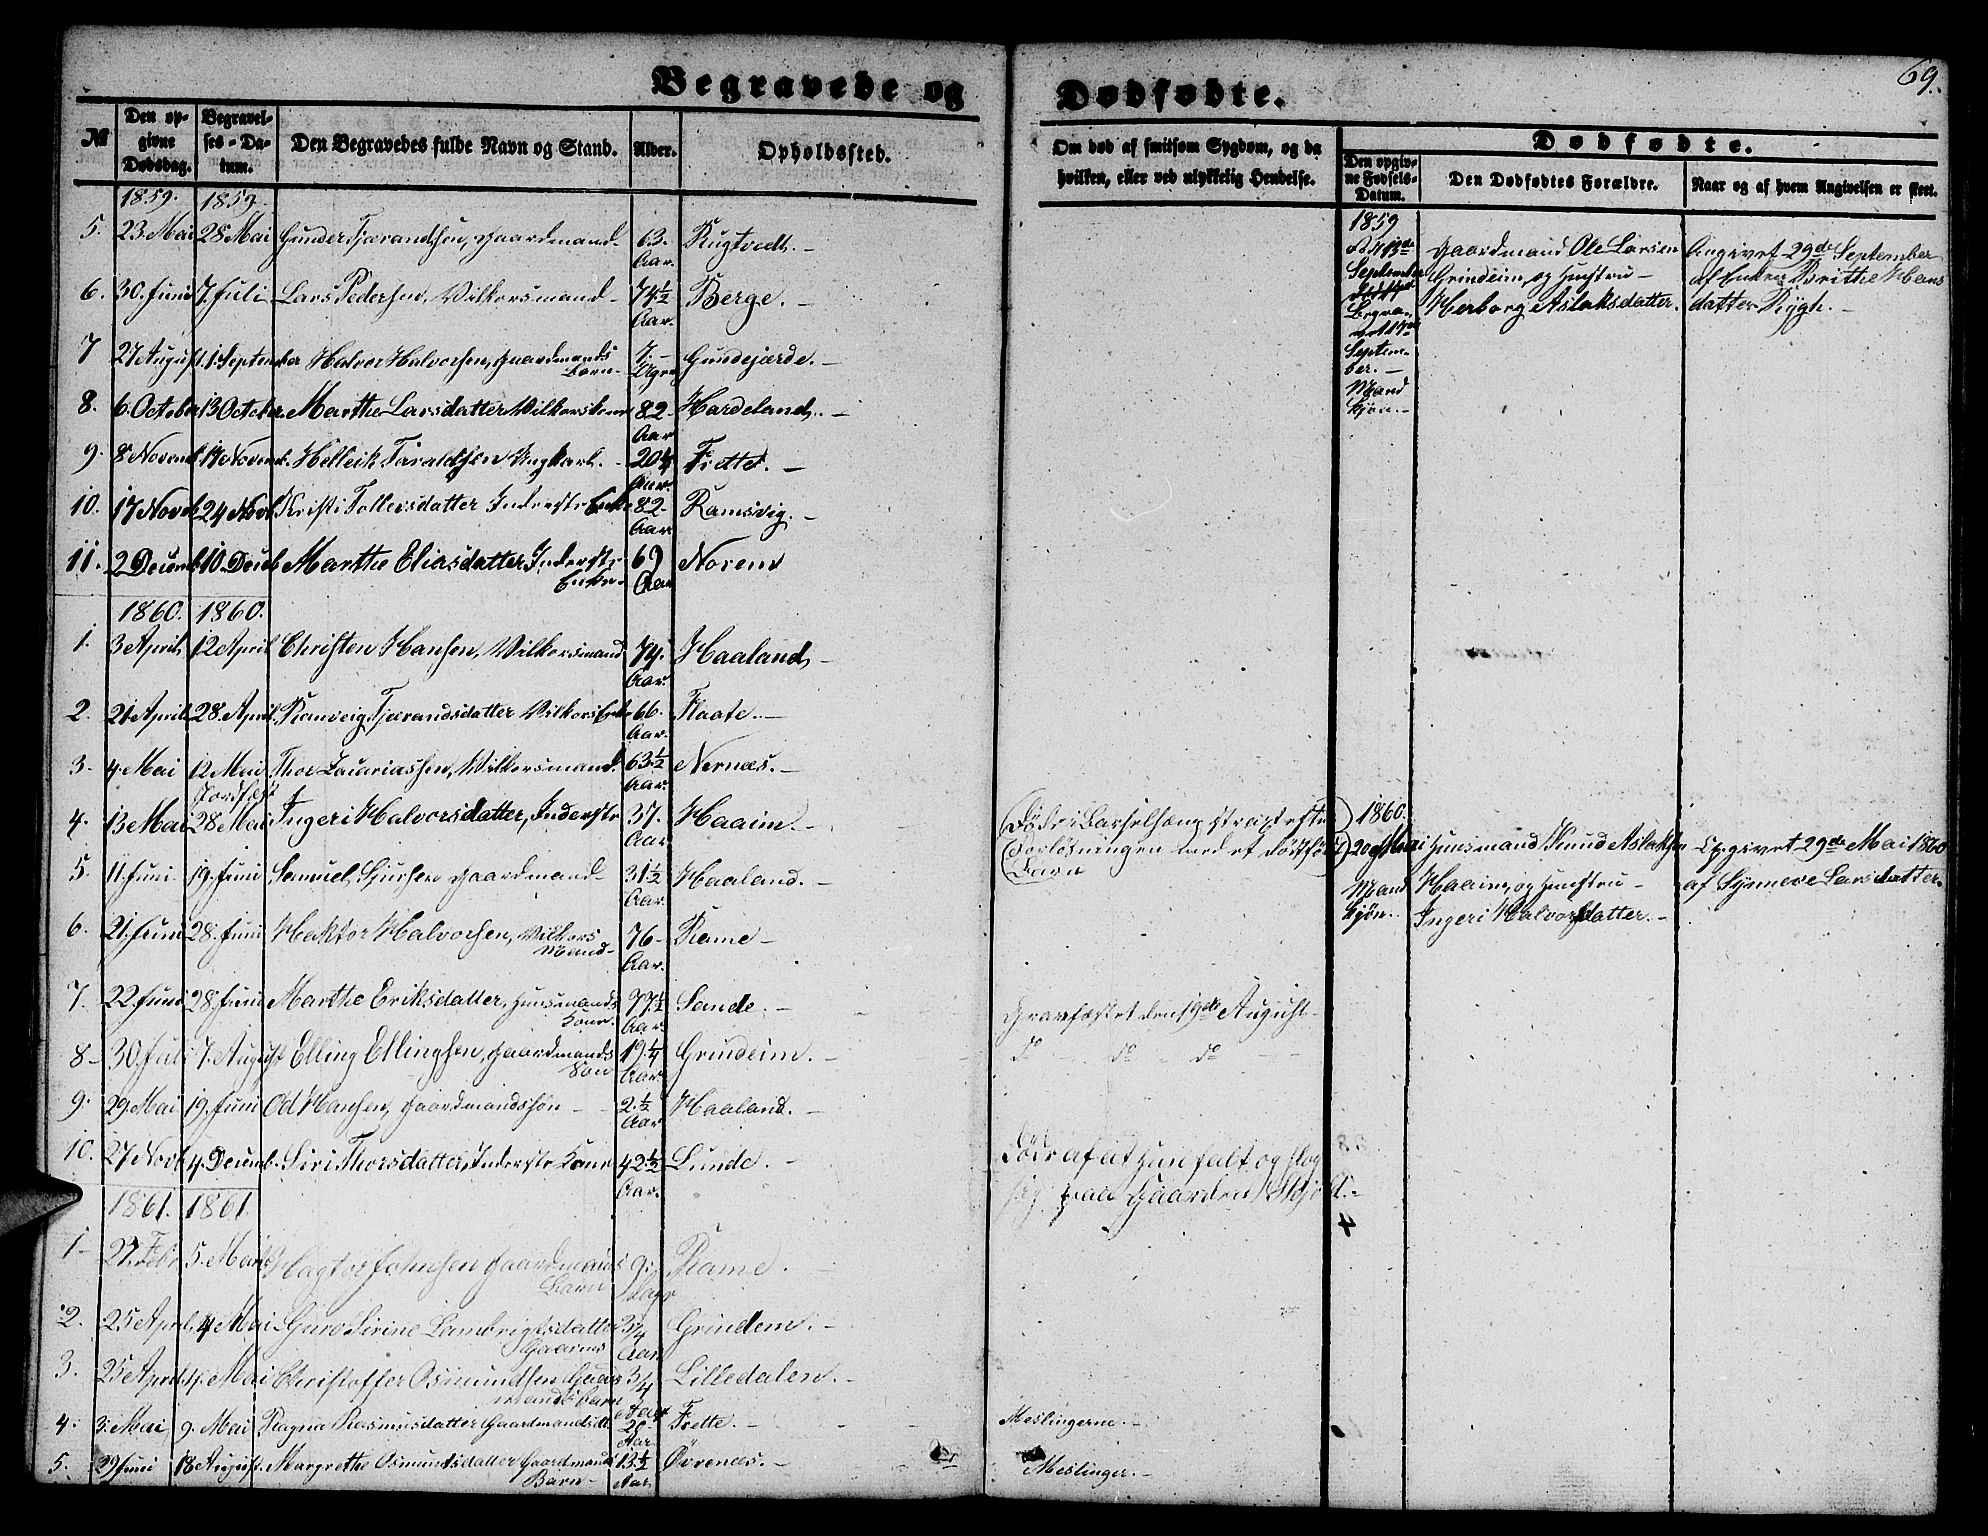 69.
Begravede og Dødfødte.
№ Den opgivne Dødsdag. Begravelses-Datum. Den Begravedes fulde Navn og Stand. Alder. Opholdssted. Om død af smitsom Sygdom, og da hvilken, eller ved ulykkelig Hendelse.
Dødfødte.
Den opgivne Fødsels-Datum. Den Dødfødtes Forældre. Naar og af hvem Angivelsen er skeet.
1859. 1859.
5. 23 Mai 28 Mai Gunder Tjærandsen, Gaardmand. 63. Aar. Rugtvedt.
6. 30. Juni 7. Juli Lars Pedersen, Vilkorsmand 74½ Aar. Berge.
7 27 August. 1. September Halvor Halvorsen, Gaardmands Barn. 7. Uger Gundejærde.
8. 6 October 13 October Marthe Larsdatter Vilkorskone 82 Aar Hardeland.
9. 8 Novemb. 17 Novemb. Helleik Taraldsen Ungkarl. 20¼ Aar. Frette.
10. 17 Novb 24 Novb Kristi Tollevsdatter Inderste Enke 82 Aar Ramsvig.
11. 2 Decemb 10. Decemb Marthe Eliasdatter Inderste Enke 69 Aar Norem
1859
September
Begravet 17de September. Mandkjøn.
Gaardmand Ole Larsen
Grindeim, og Hustru
Herborg Aslaksdatter.
Angivet 29de September
af Enken Brithe Hansdatter Rygh.
1860. 1860.
1. 3 April 12 April Christen Hansen, Vilkorsmand 74. Aar. Haaland
2. 21 April 28. April. Ranveig Tjærandsdatter Vilkors Enke 66. Aar. Flaate.
3. 4. Mai 12 Mai Thor Zacariassen, Vilkorsmand. 63½ Aar. Nernæs.
Jordfæst
4. 13 Mai 28 Mai Ingeri Halvorsdatter, Inderste 37. Aar. Haaim. Døde i Barselseng strax efter Forløsningen med et dødfødt Barn
5. 11. Juni 19. Juni Samuel Sjursen Gaardmand 31½ Aar. Haaland.
6. 21. Juni 28. Juni Haktor Halvorsen, Vilkors Mand 76 Aar. Rame
7. 22. Juni 28. Juni Marthe Eriksdatter, Huusmands Kone. 77½ Aar. Sande. Gravfæstet den 19de August
8 30. Juli 7. August Elling Ellingsen, Gaardmands Søn 19¼ Aar Grindeim. do do do
9. 29 Mai 19. Juni Od Hansen, Gaardmandssøn 2.½ Aar Haaland.
10. 27 Novb 4. Decemb. Siri Thorsdatter, Inderste Kone 42½ Aar. Lunde. Døde af at Hun falt og slog sig paa Gaarden Skjold.
1860.
20 Mai Mandkjøn.
Huusmand Knud Aslaksen
Haaim, og Hustru
Ingeri Halvorsdatter.
Opgivet 29de Mai 1860
af Synneve Larsdatter.
1861. 1861.
1 27. Febr 5. Marts Hagtor Johnsen Gaardmans Barn 9. Dage Rame.
2. 25 April. 4 Mai Guro Sirine Lambrigtsdatter Gaarms ¾ Aar. Grindem.
3. 25 April 4. Mai Christoffer Osmundsen Gaardmands barn ¾ Aar Lilledalen.
4. 3. Mai 9. Mai Ragna Rasmusdatter Gaardmandsdt. 20 Aar Frette. Meslingerne.
5. 29 Juni 18 August. Margrethe Osmundsdatter Gaardmands Barn 13½ Aar. Øvrenæs. Meslinger.